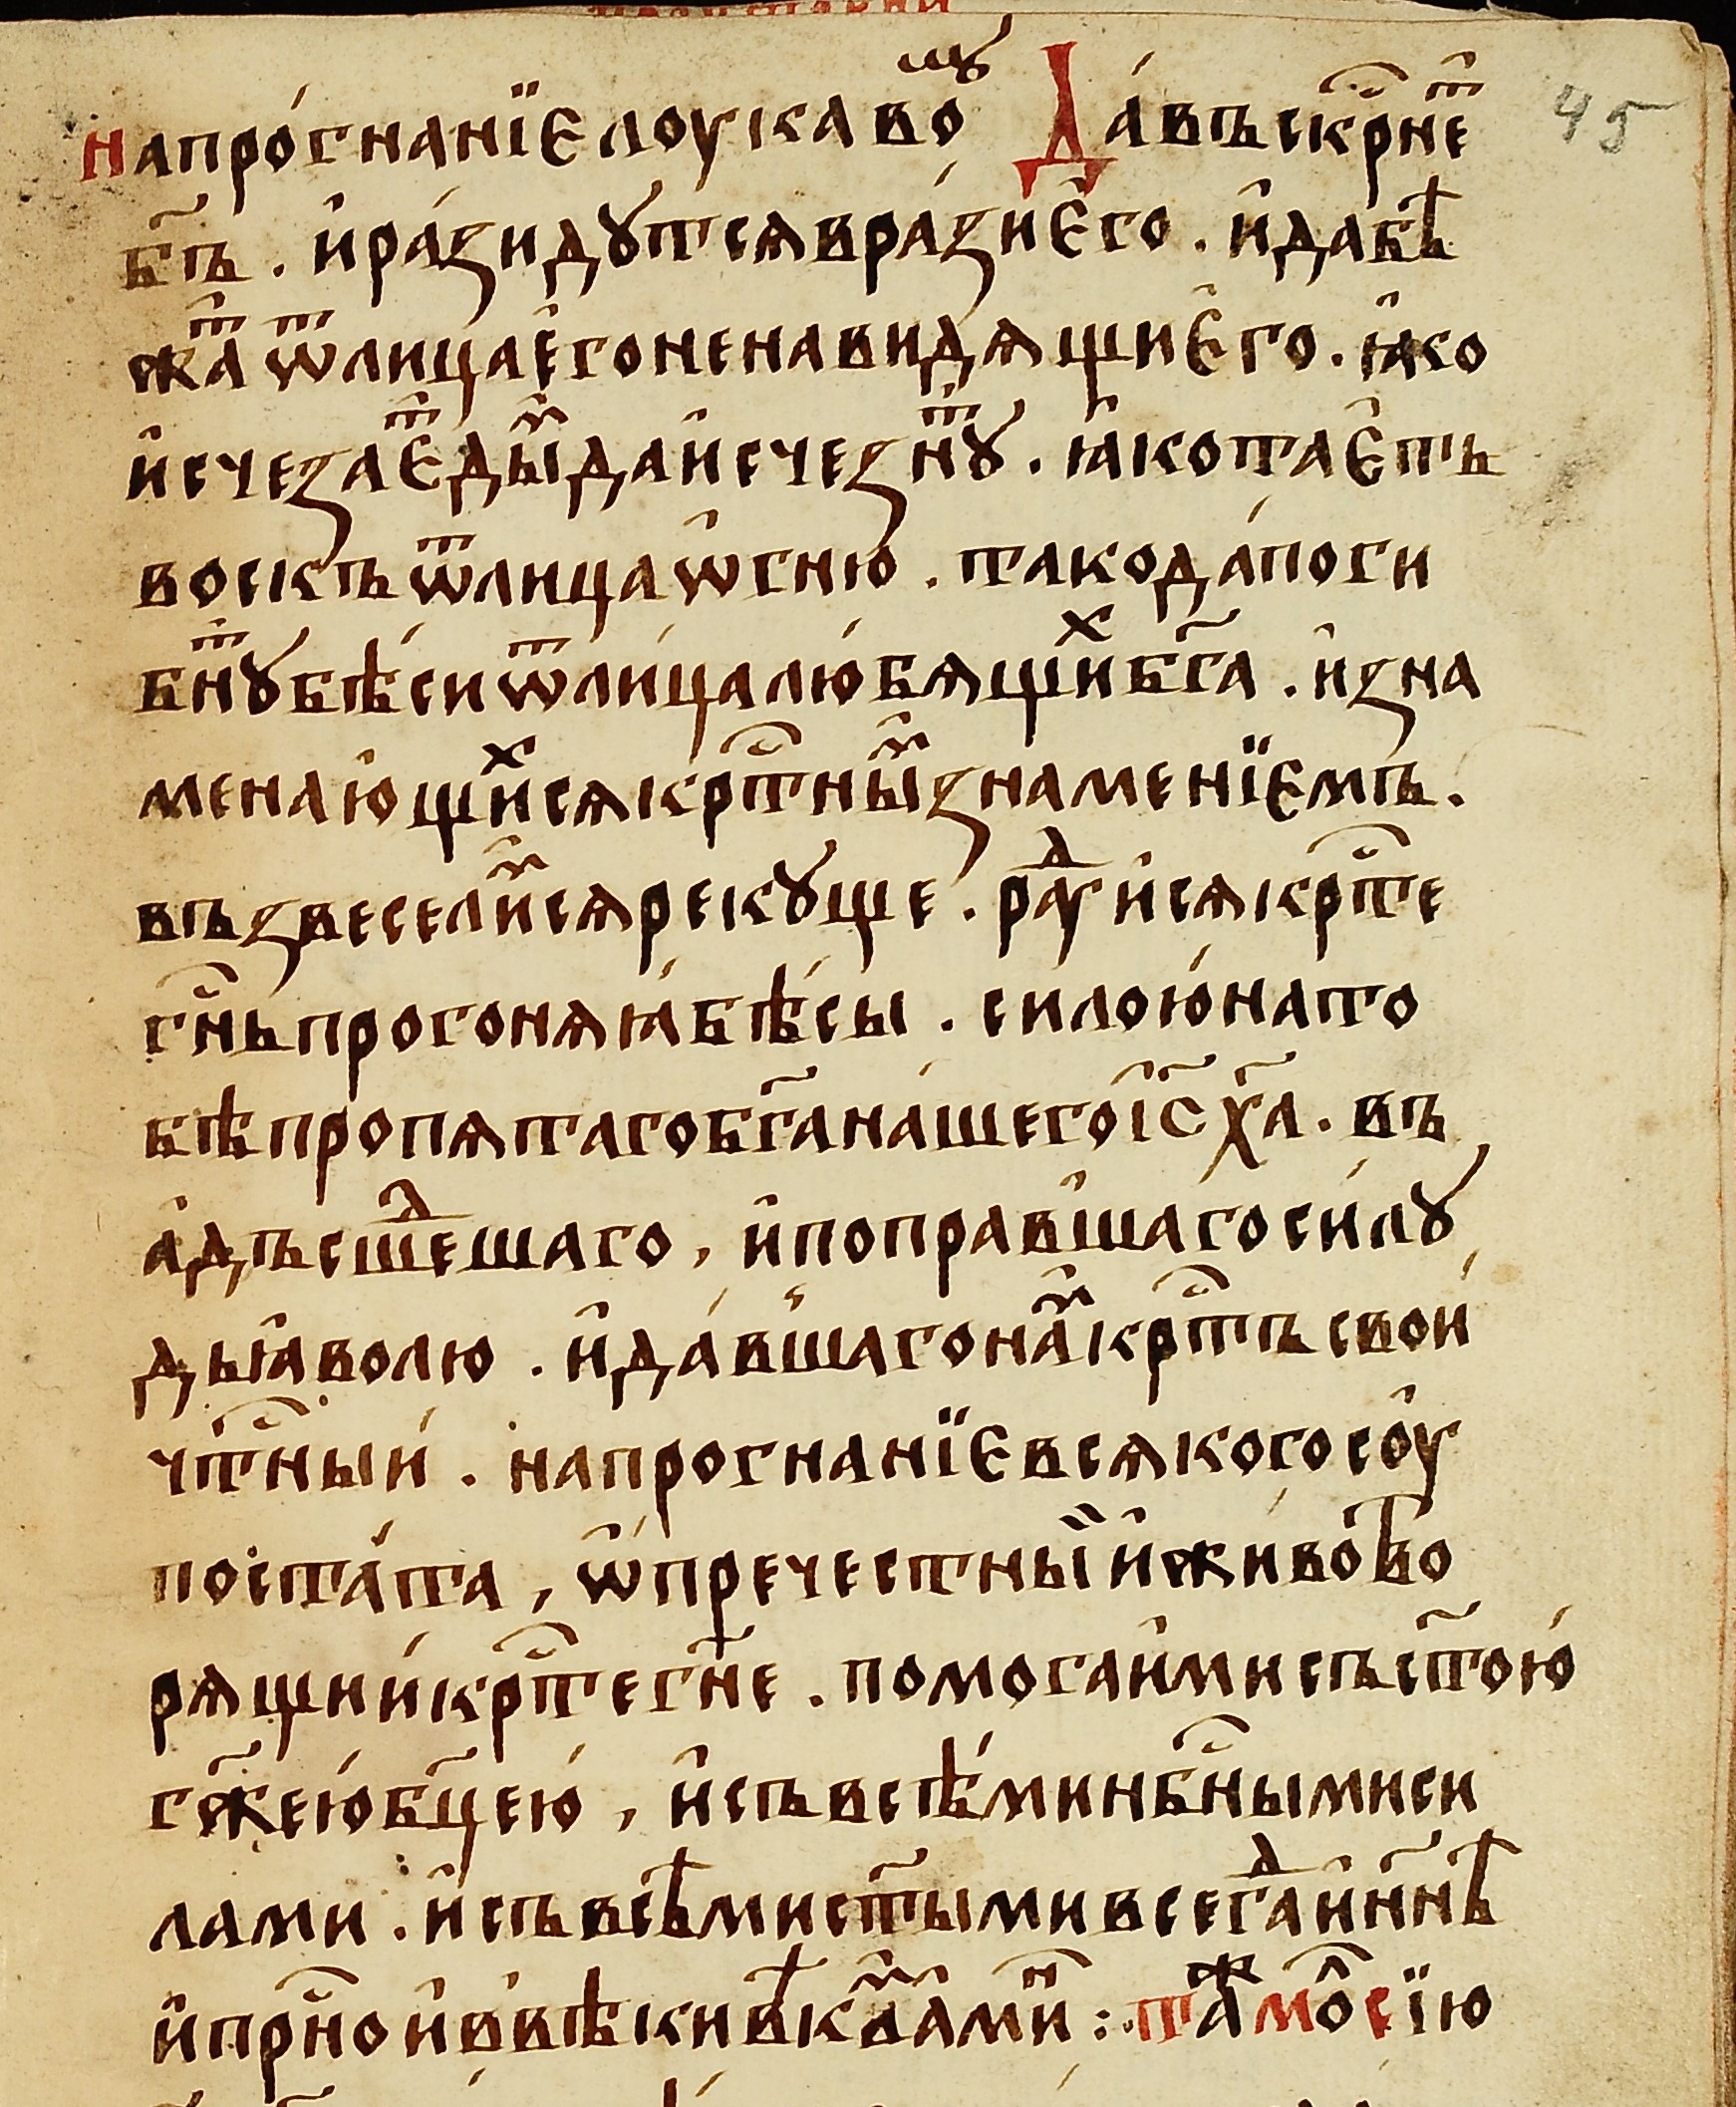 на про́гнанїе лоукаво щꙋ Да́ въскрⷭ҇неⷮ
бг҃ъ . и҆ра́зидꙋтсѧ вра́ѕи є҆го . и҆ да бѣ
жаⷮ ѿ лица є҆го ненавидѧщи є҆го . ꙗ҆ко
и҆счезаеⷮ ды̑ⷨ да и҆счезнꙋⷮ . ꙗ҆ко таетъ
воскъ ѿ лица ѡ҆гню . тако да́ поги
бнꙋⷮ бѣ́си ѿ ли́ца лю́бѧщиⷯ бг҃а . и҆ зна
менаю҆щиⷯсѧ крⷭ҇тныⷨ знаменїемъ .
въз веселиⷨсѧ рекꙋще . раⷣуисѧ крⷭ҇те
гнⷭ҇ь прогонѧꙗ́ бѣ́сы . силою́ на то
бѣ пропѧтаго бг҃а на́шего і҆с҃ х҃а . въ
а҆дъ сшеⷣшаго , и҆ поправ̾шаго си́лꙋ
дьꙗ҆волю . и҆ да́в̾шаго наⷨ крⷭ҇тъ свои́
чтⷭ҇ныи́ . на прогнанїе всѧкого соу
поста́та , ѡ҆ пречестны̏и и҆ живо́тво
рѧщии́ крⷭ҇те гн҃е . помогаи҆ ми съ ст҃ою́
гж҃ею́ бц҃ею́ , и҆ съ всѣ́ми нбⷭ҇ными си
лами . и҆ съ всѣми ст҃ыми всегаⷣ и҆ нн҃ѣ
и҆ прⷭ҇но и҆ в вѣки вѣкаⷨ амиⷩ : таⷤ моⷧ҇ сїю